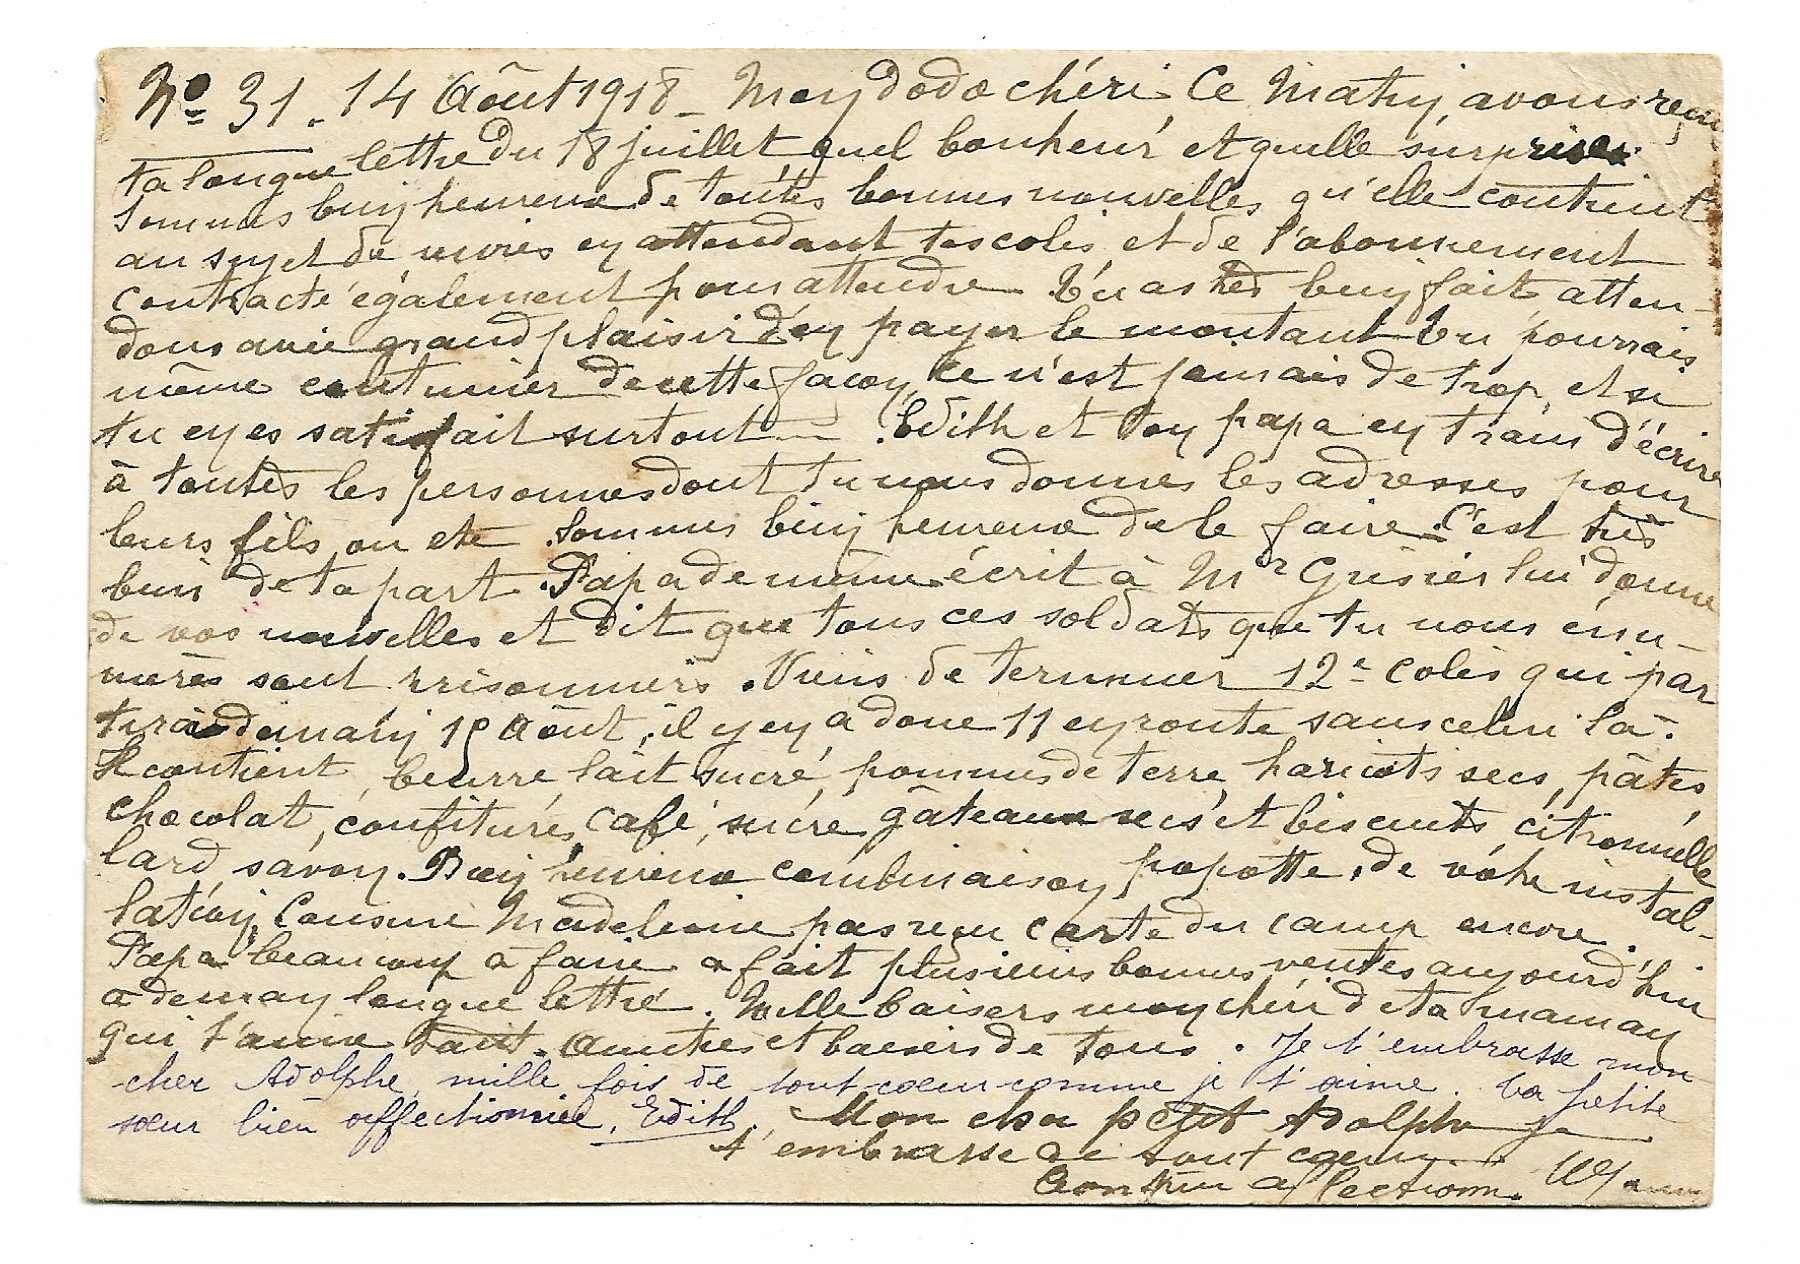 No 31. 14 Août 1918 _ Mon Dodo chéri. Ce Matin avons reçu
ta longue lettre du 18 juillet quel bonheur et quelle surprise.
Sommes bien heureux de toutes bonnes nouvelles qu'elle contient
au sujet de vivres en attendant tes colis, et de l'abonnement
contracté également pour attendre _ Tu as très bien fait, atten-
dons avec grand plaisir d'en payer le montant. Tu pourrais
même continuer de cette façon, ce n'est jamais de trop, et si
tu en es satisfait surtout _ . Edith et ton papa en train d'écrire
à toutes les personnes dont tu nous donnes les adresses pour
leurs fils, ou etc _ . Sommes bien heureux de le faire. C'est très
bien de ta part. Papa de même écrit à Mr Grisier lui donne
de vos nouvelles et dit que tous ces soldats que tu nous énu-
mères sont prisonniers. Viens de terminer 12e colis qui par
tira demain 15 Août, il y en a donc 11 en route sans celui là.
Il contient, beurre, lait sucré, pommes de terre, haricots secs, pâtes,
chocolat, confitures, café, sucre, gâteaux secs et biscuits, citronnelle
lard, savon. Bien heureux combinaison popotte, de votre instal-
lation. Cousine Madeleine pas reçu carte du camp encore.
Papa beaucoup à faire a fait plusieurs bonnes ventes aujourd'hui
a demain longue lettre. Mille baisers mon chéri de ta maman
qui t'aime tant. Amitiés et baisers de tous. Je t'embrasse mon
cher Adolphe, mille fois de tout coeur comme je t'aime. Ta petite
soeur bien affectionnée, Edith. Mon cher petit Adolphe je
t'embrasse de tout coeur.
Ton affectionn.